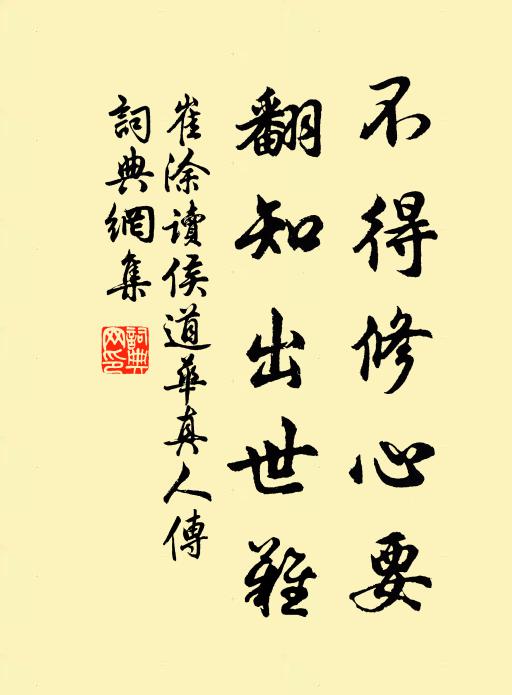 不得修心要
翻知出世難
崔涂讀侯道華真人傳
詞典網集
詞典
网印